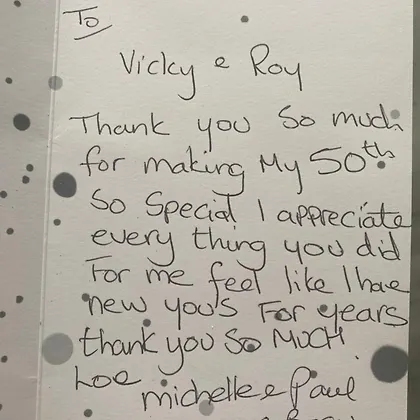 To
Vicky e Roy
Thank you so much
for making My 50th
So Special I appreciate
every thing you did
For me feel like I hae
new you's For years
thank you So MUCH
Loe
michelle e Paul